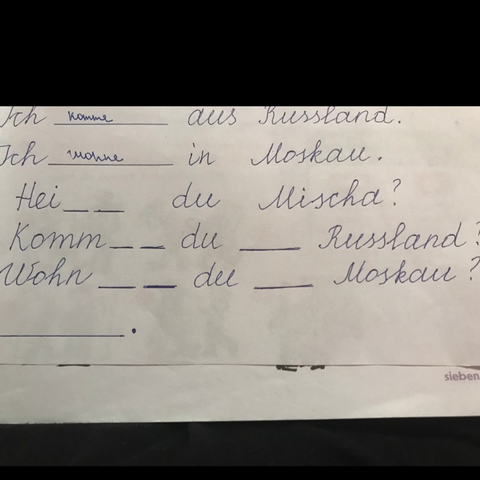 Ich komme aus Russland.
Ich wohne in Moskau.
Hei_ _ du Mischa?
Komm_ _ du ___ Russland?
Wohn _ _ du ___ Moskau?
________.
sieben